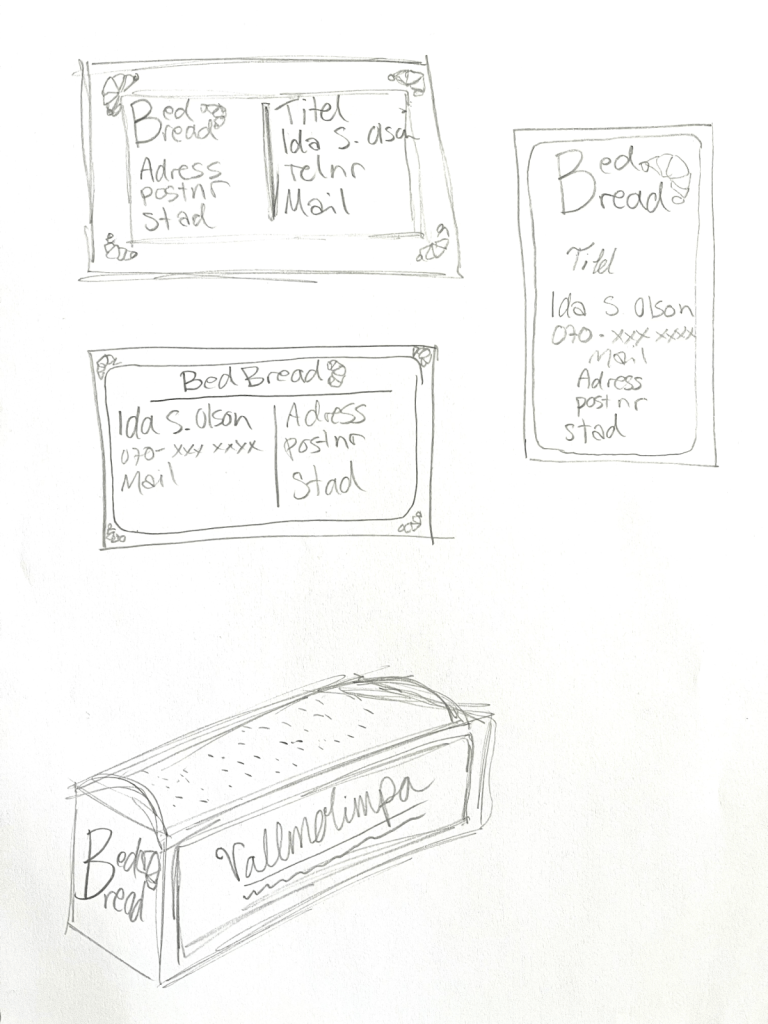 Bed
Bread
Adress
postnr
stad
Titel
Ida S. Olson
Telnr
Mail
Bed
Bread
Titel
Ida S Olson
070-xxx xxxx
Mail
Adress
postnr
stad
BedBread
Ida S. Olson
070-xxx xxxx
Mail
Adress
postnr
stad
Bed
Bread
Vallmolimpa